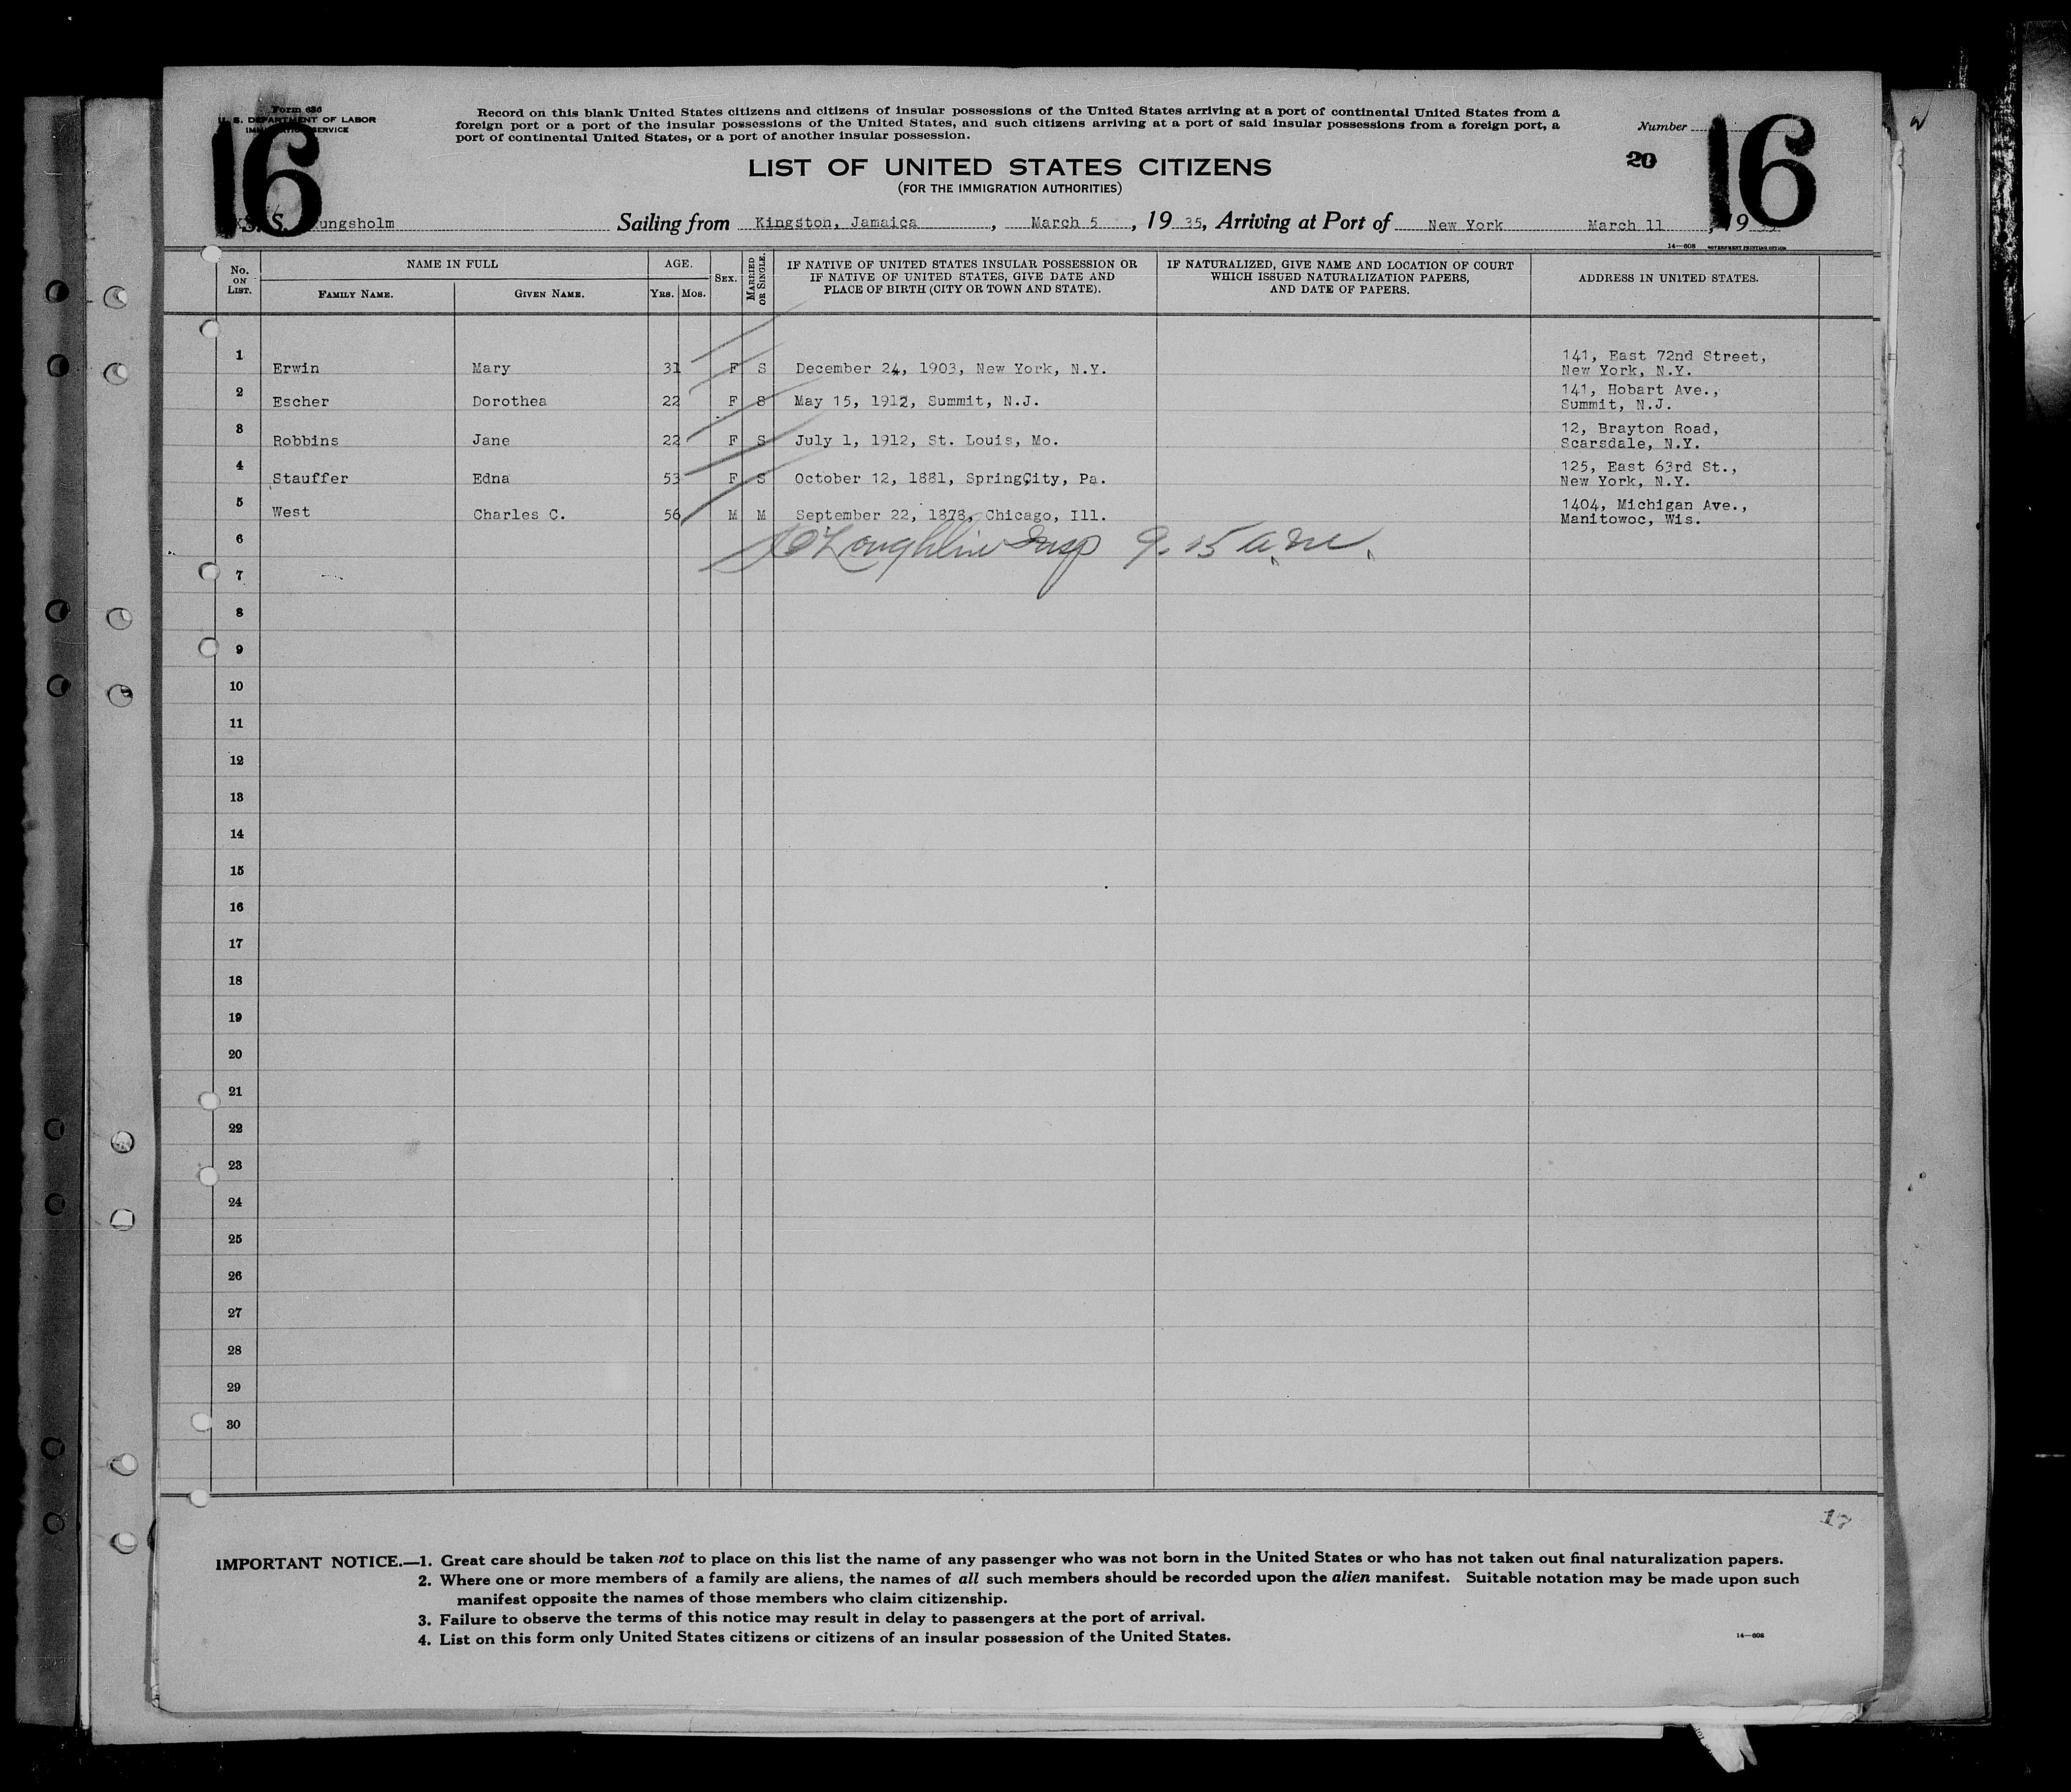 Form 686
U. S. DEPARTMENT OF LABOR
IMMIGRATION SERVICE
16
Record on this blank United States citizens and citizens of insular possessions of the United States arriving at a port of continental United States from a
foreign port or a port of the insular possessions of the United States, and such citizens arriving at a port of said insular possessions from a foreign port, a
port of continental United States, or a port of another insular possession.
Number
20
16
LIST OF UNITED STATES CITIZENS
(FOR THE IMMIGRATION AUTHORITIES)
S. S. ungsholm Sailing from Kingston, Jamaica, March 5, 1935, Arriving at Port of New York March 11, 19
14—608 GOVERNMENT PRINTING OFFICE
No. ON LIST. NAME IN FULL AGE. SEX. MARRIED OR SINGLE. IF NATIVE OF UNITED STATES INSULAR POSSESSION OR IF NATIVE OF UNITED STATES, GIVE DATE AND PLACE OF BIRTH (CITY OR TOWN AND STATE). IF NATURALIZED, GIVE NAME AND LOCATION OF COURT WHICH ISSUED NATURALIZATION PAPERS, AND DATE OF PAPERS. ADDRESS IN UNITED STATES.
FAMILY NAME. GIVEN NAME. YRS. MOS.
1 Erwin Mary 31 F S December 24, 1903, New York, N.Y. 141, East 72nd Street, New York, N.Y.
2 Escher Dorothea 22 F S May 15, 1912, Summit, N.J. 141, Hobart Ave., Summit, N.J.
3 Robbins Jane 22 F S July 1, 1912, St. Louis, Mo. 12, Brayton Road, Scarsdale, N.Y.
4 Stauffer Edna 53 F S October 12, 1881, SpringCity, Pa. 125, East 63rd St., New York, N.Y.
5 West Charles C. 56 M M September 22, 1878, Chicago, Ill. 1404, Michigan Ave., Manitowoc, Wis.
6 O'Loughlin Insp 9.15 a.m.
7
8
9
10
11
12
13
14
15
16
17
18
19
20
21
22
23
24
25
26
27
28
29
30
17
IMPORTANT NOTICE.—1. Great care should be taken not to place on this list the name of any passenger who was not born in the United States or who has not taken out final naturalization papers.
2. Where one or more members of a family are aliens, the names of all such members should be recorded upon the alien manifest. Suitable notation may be made upon such
manifest opposite the names of those members who claim citizenship.
3. Failure to observe the terms of this notice may result in delay to passengers at the port of arrival.
4. List on this form only United States citizens or citizens of an insular possession of the United States.
14—608